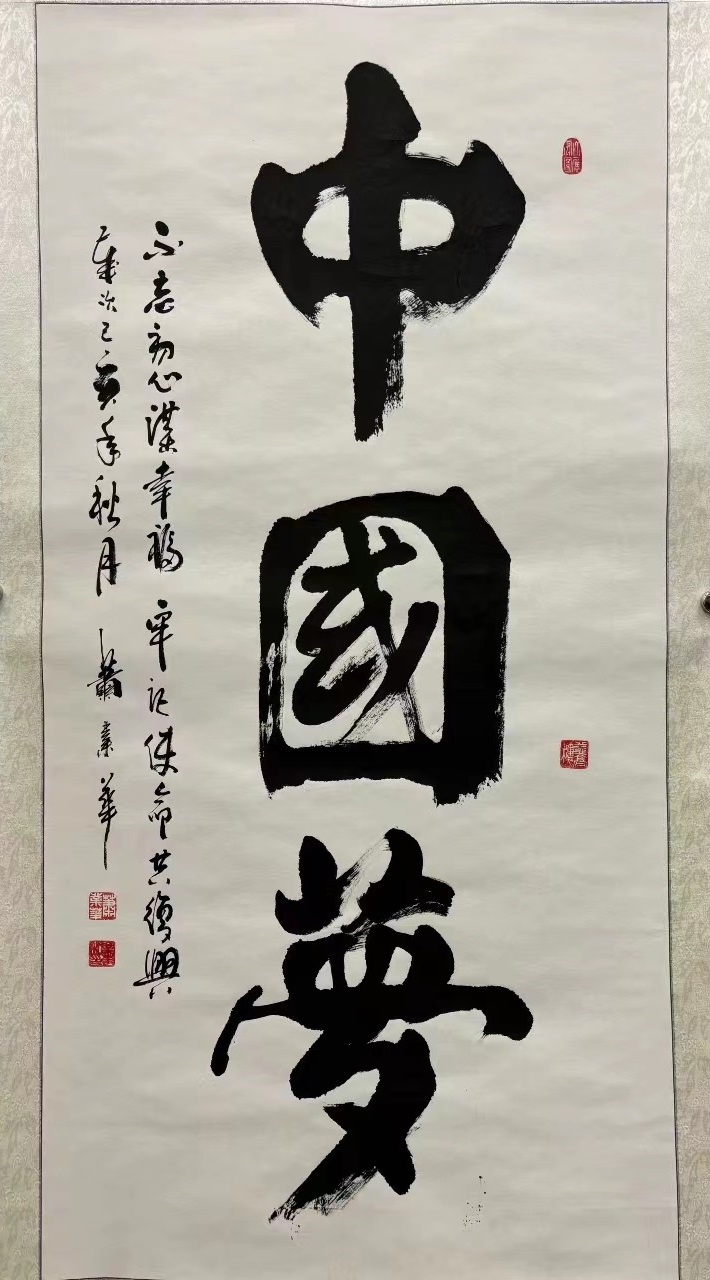 中國夢
不忘初心謀幸福 牢記使命共復興
歲次己亥年秋月 蕭嘉華